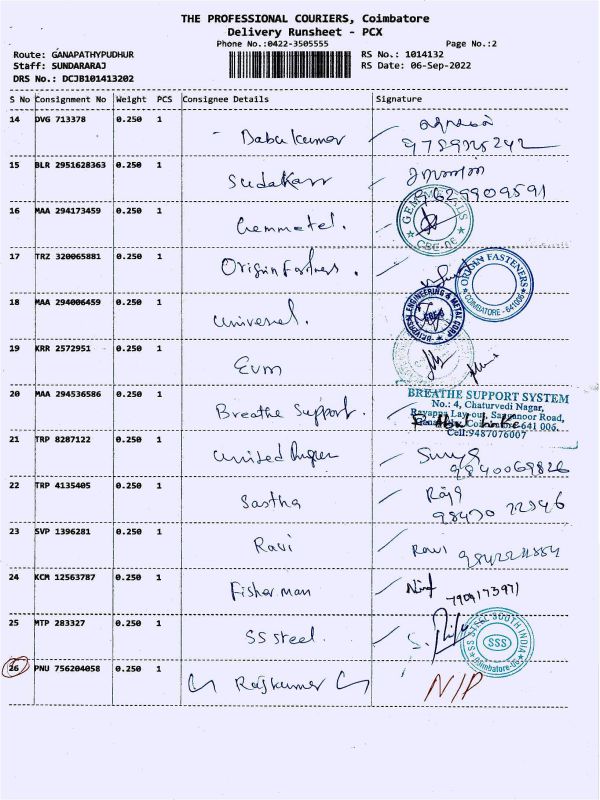 THE PROFESSIONAL COURIERS, Coimbatore
Delivery Runsheet - PCX
Phone No.:0422-3505555 Page No.:2
Route: GANAPATHYPUDHUR RS No.: 1014132
Staff: SUNDARARAJ RS Date: 06-Sep-2022
DRS No.: DCJB101413202
S No Consignment No Weight PCS Consignee Details Signature
14 DVG 713378 0.250 1
Babu Kumar
15 BLR 2951628363 0.250 1
Sudakarr
9629909591
16 MAA 294173459 0.250 1
Gemmetel.
GEM METALS
CBE-06
17 TRZ 320065881 0.250 1
Origin Fastners.
ORIGIN FASTENERS
COIMBATORE - 641006
18 MAA 294006459 0.250 1
Universel.
ENGINEERING & METAL CORP
19 KRR 2572951 0.250 1
Evm
20 MAA 294536586 0.250 1
Breathe Support.
BREATHE SUPPORT SYSTEM
No.: 4, Chaturvedi Nagar,
Rayappa Lay-out, Sanganoor Road,
Coimbatore-641 006.
Cell:9487076007
21 TRP 8287122 0.250 1
United
Surya
9840069826
22 TRP 4135405 0.250 1
Sastha
Raja
23 SVP 1396281 0.250 1
Ravi
Ravi
24 KCM 12563787 0.250 1
Fisherman
7909173971
25 MTP 283327 0.250 1
SS Steel.
SS STEEL SOUTH INDIA
SSS
Coimbatore-06
26 PNU 756204058 0.250 1
Rajkumar
N/P